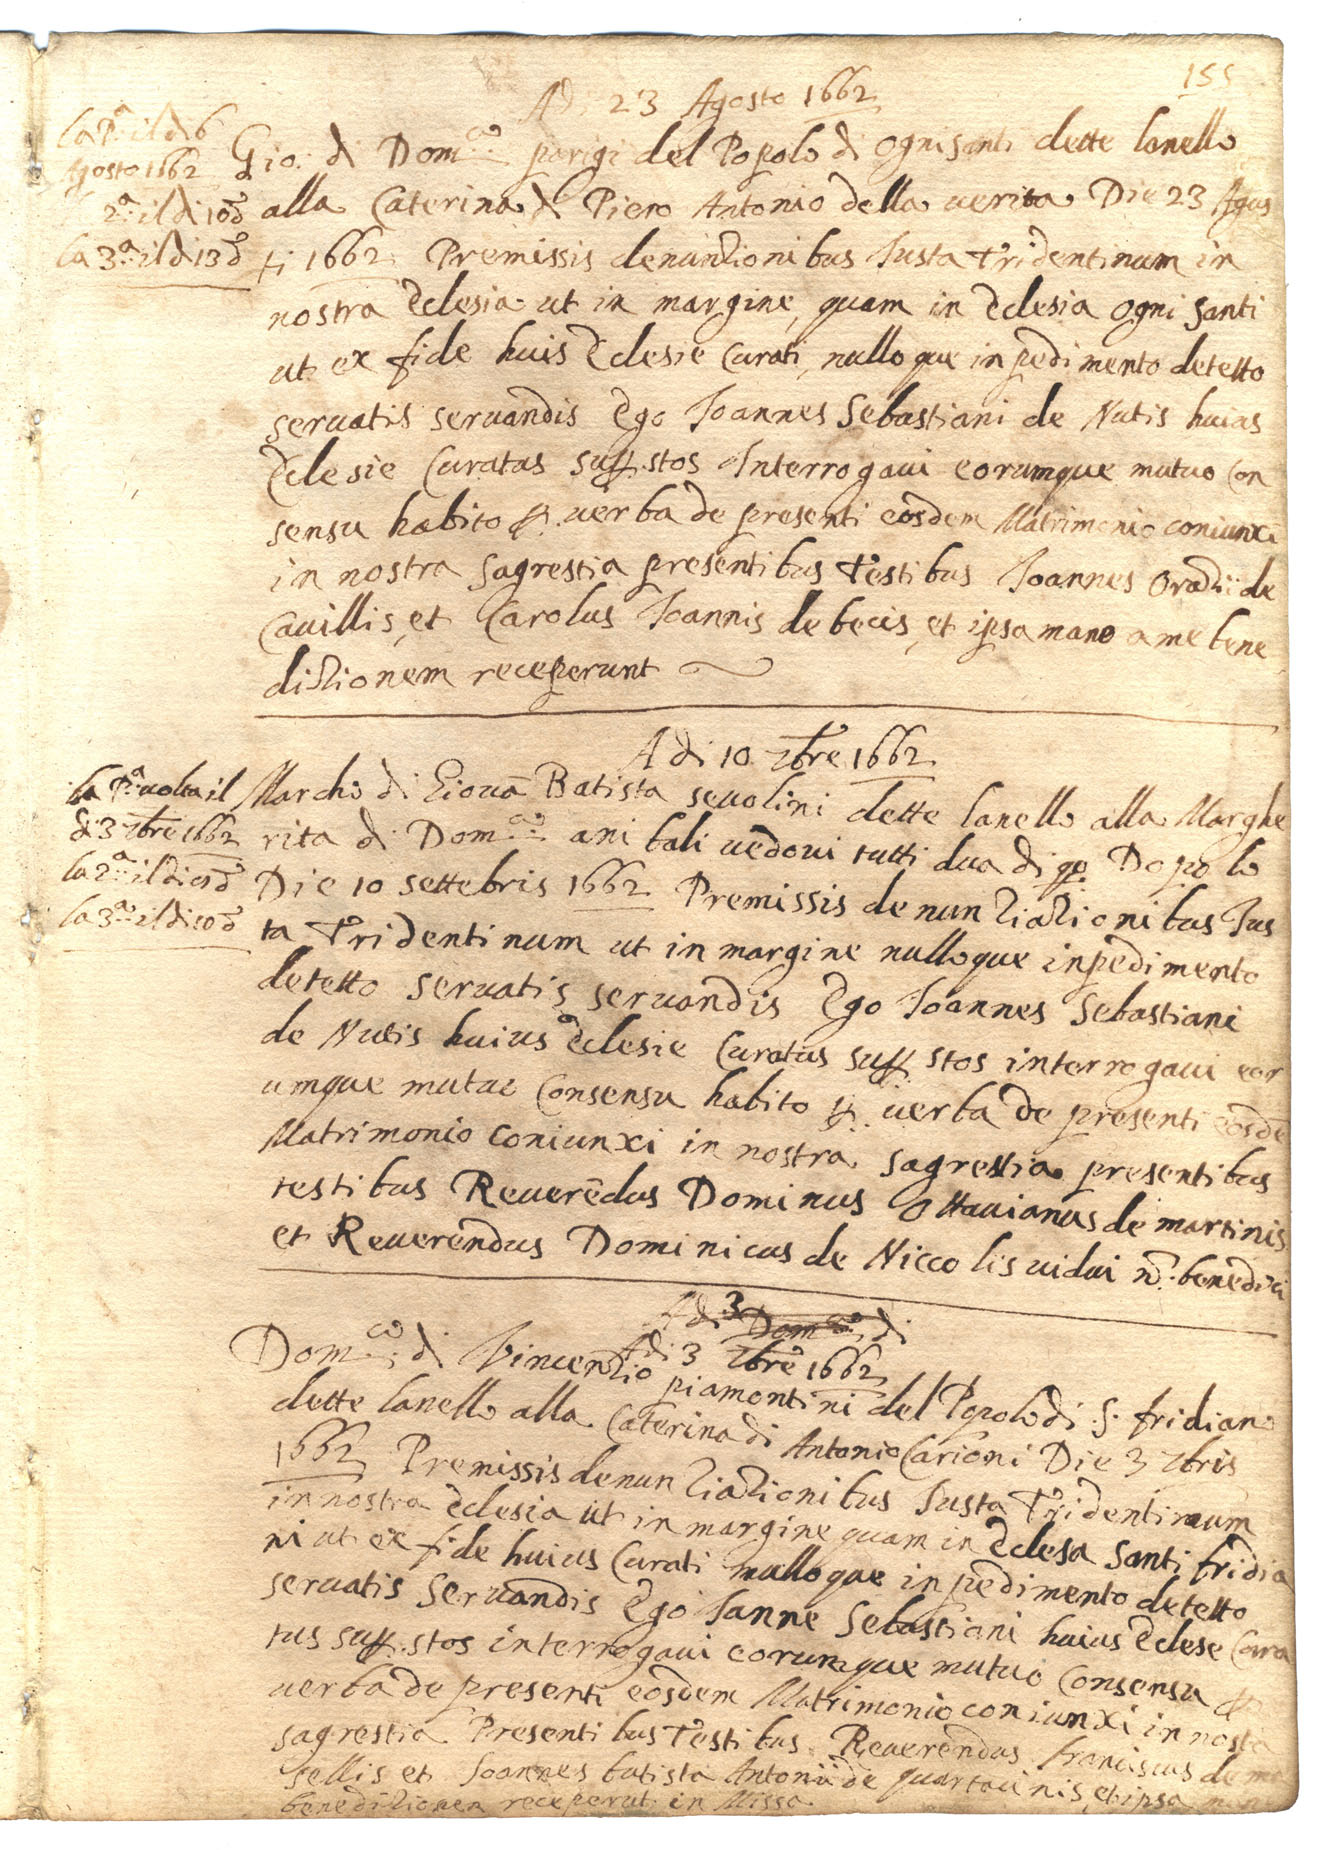 155
Adi 23 Agosto 1662
la Pª il di 6
Agosto 1662
2ª il di 10 dº
la 3ª il di 13 dº
Gio: di Domco parigi del Popolo di ognisanti dette lanello
alla Caterina di Piero Antonio della uerita Die 23 Agus
ti 1662 Premissis denuntionibus Iusta tridentinum in
nostra Eclesia ut in margine, quam in Eclesia ogni santi
ut ex fide huis Eclesie Curati, nulloque inpedimento detetto
seruatis seruandis Ego Ioannes Sebastiani de Nutis huius
Eclesie Curatus supp.stos Interrogaui eorumque mutuo Con
sensu habito p. uerba de presenti eosdem Matrimonio coniunxi
in nostra sagrestia presentibus testibus Ioannes Oratii de
Cauillis, et Carolus Ioannis de becis, et ipsa mane a me bene
ditionem receperunt
Adi 10 7bre 1662
la Pª uolta il
di 3 7bre 1662
la 2ª il di dº
la 3ª il di 10 dº
Marcho di Giouā Batista seuolini dette lanello alla Marghe
rita di Domco ani bali uedoui tutti dua di qo Popolo
Die 10 settebris 1662 Premissis denuntiationibus Ius
ta tridentinum ut in margine nulloque inpedimento
detetto seruatis seruandis Ego Ioannes Sebastiani
de Nutis huius Eclesie Curatus supp stos interrogaui eor
umque mutuo Consensu habito p. uerba de presenti eosdē
Matrimonio coniunxi in nostra sagrestia presentibus
testibus Reuerēdus Dominus Ottauianus de martinis
et Reuerendus Dominicus de Niccolis uidui nō. benedici
Adi 3 Domco di
Adi 3 7bre 1662
Domco di Vincentio piamontini del Popolo di S. fridiano
dette lanello alla Caterina di Antonio Carioni Die 3 7bris
1662 Premissis denuntiationibus Iusta tridentinum
in nostra Eclesia ut in margine quam in Eclesa santi fridia
ni ut ex fide huius Curati nulloque inpedimento detetto
seruatis seruandis Ego Ianne Sebastiani huius Eclese Cura
tus supp.stos interrogaui eorumque mutuo Consensu p
uerba de presenti eosdem Matrimonio coniunxi in nostra
sagrestia Presentibus testibus Reuerendus franciscus de
sellis et Ioannes batista Antonii de quartauinis, et ipsa mane
beneditionen receperut in Missa